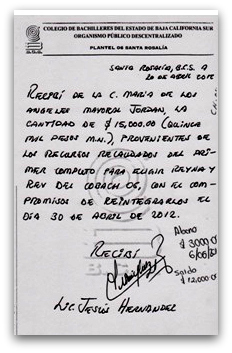 COLEGIO DE BACHILLERES DEL ESTADO DE BAJA CALIFORNIA SUR
ORGANISMO PÚBLICO DESCENTRALIZADO
PLANTEL DE SANTA ROSALÍA
SANTA ROSALÍA, B.C.S. A
20 DE ABRIL
RECIBÍ DE LA C. MARÍA DE LOS
ANGELES MAYORAL JORDAN, LA
CANTIDAD DE $15,000.00 (QUINCE
MIL PESOS M.N.), PROVENIENTES DE
LOS RECURSOS RECAUDADOS DEL PRI
MER COMPUTO PARA ELIGIR REYNA Y
REY DEL COBACH 06, CON EL COM
PROMISOS DE REINTEGRARLOS EL
DÍA 30 DE ABRIL DE 2012.
Abono
$ 3000
6/06/
Saldo
$ 12,000
RECIBÍ
LIC. JESÚS HERNANDEZ